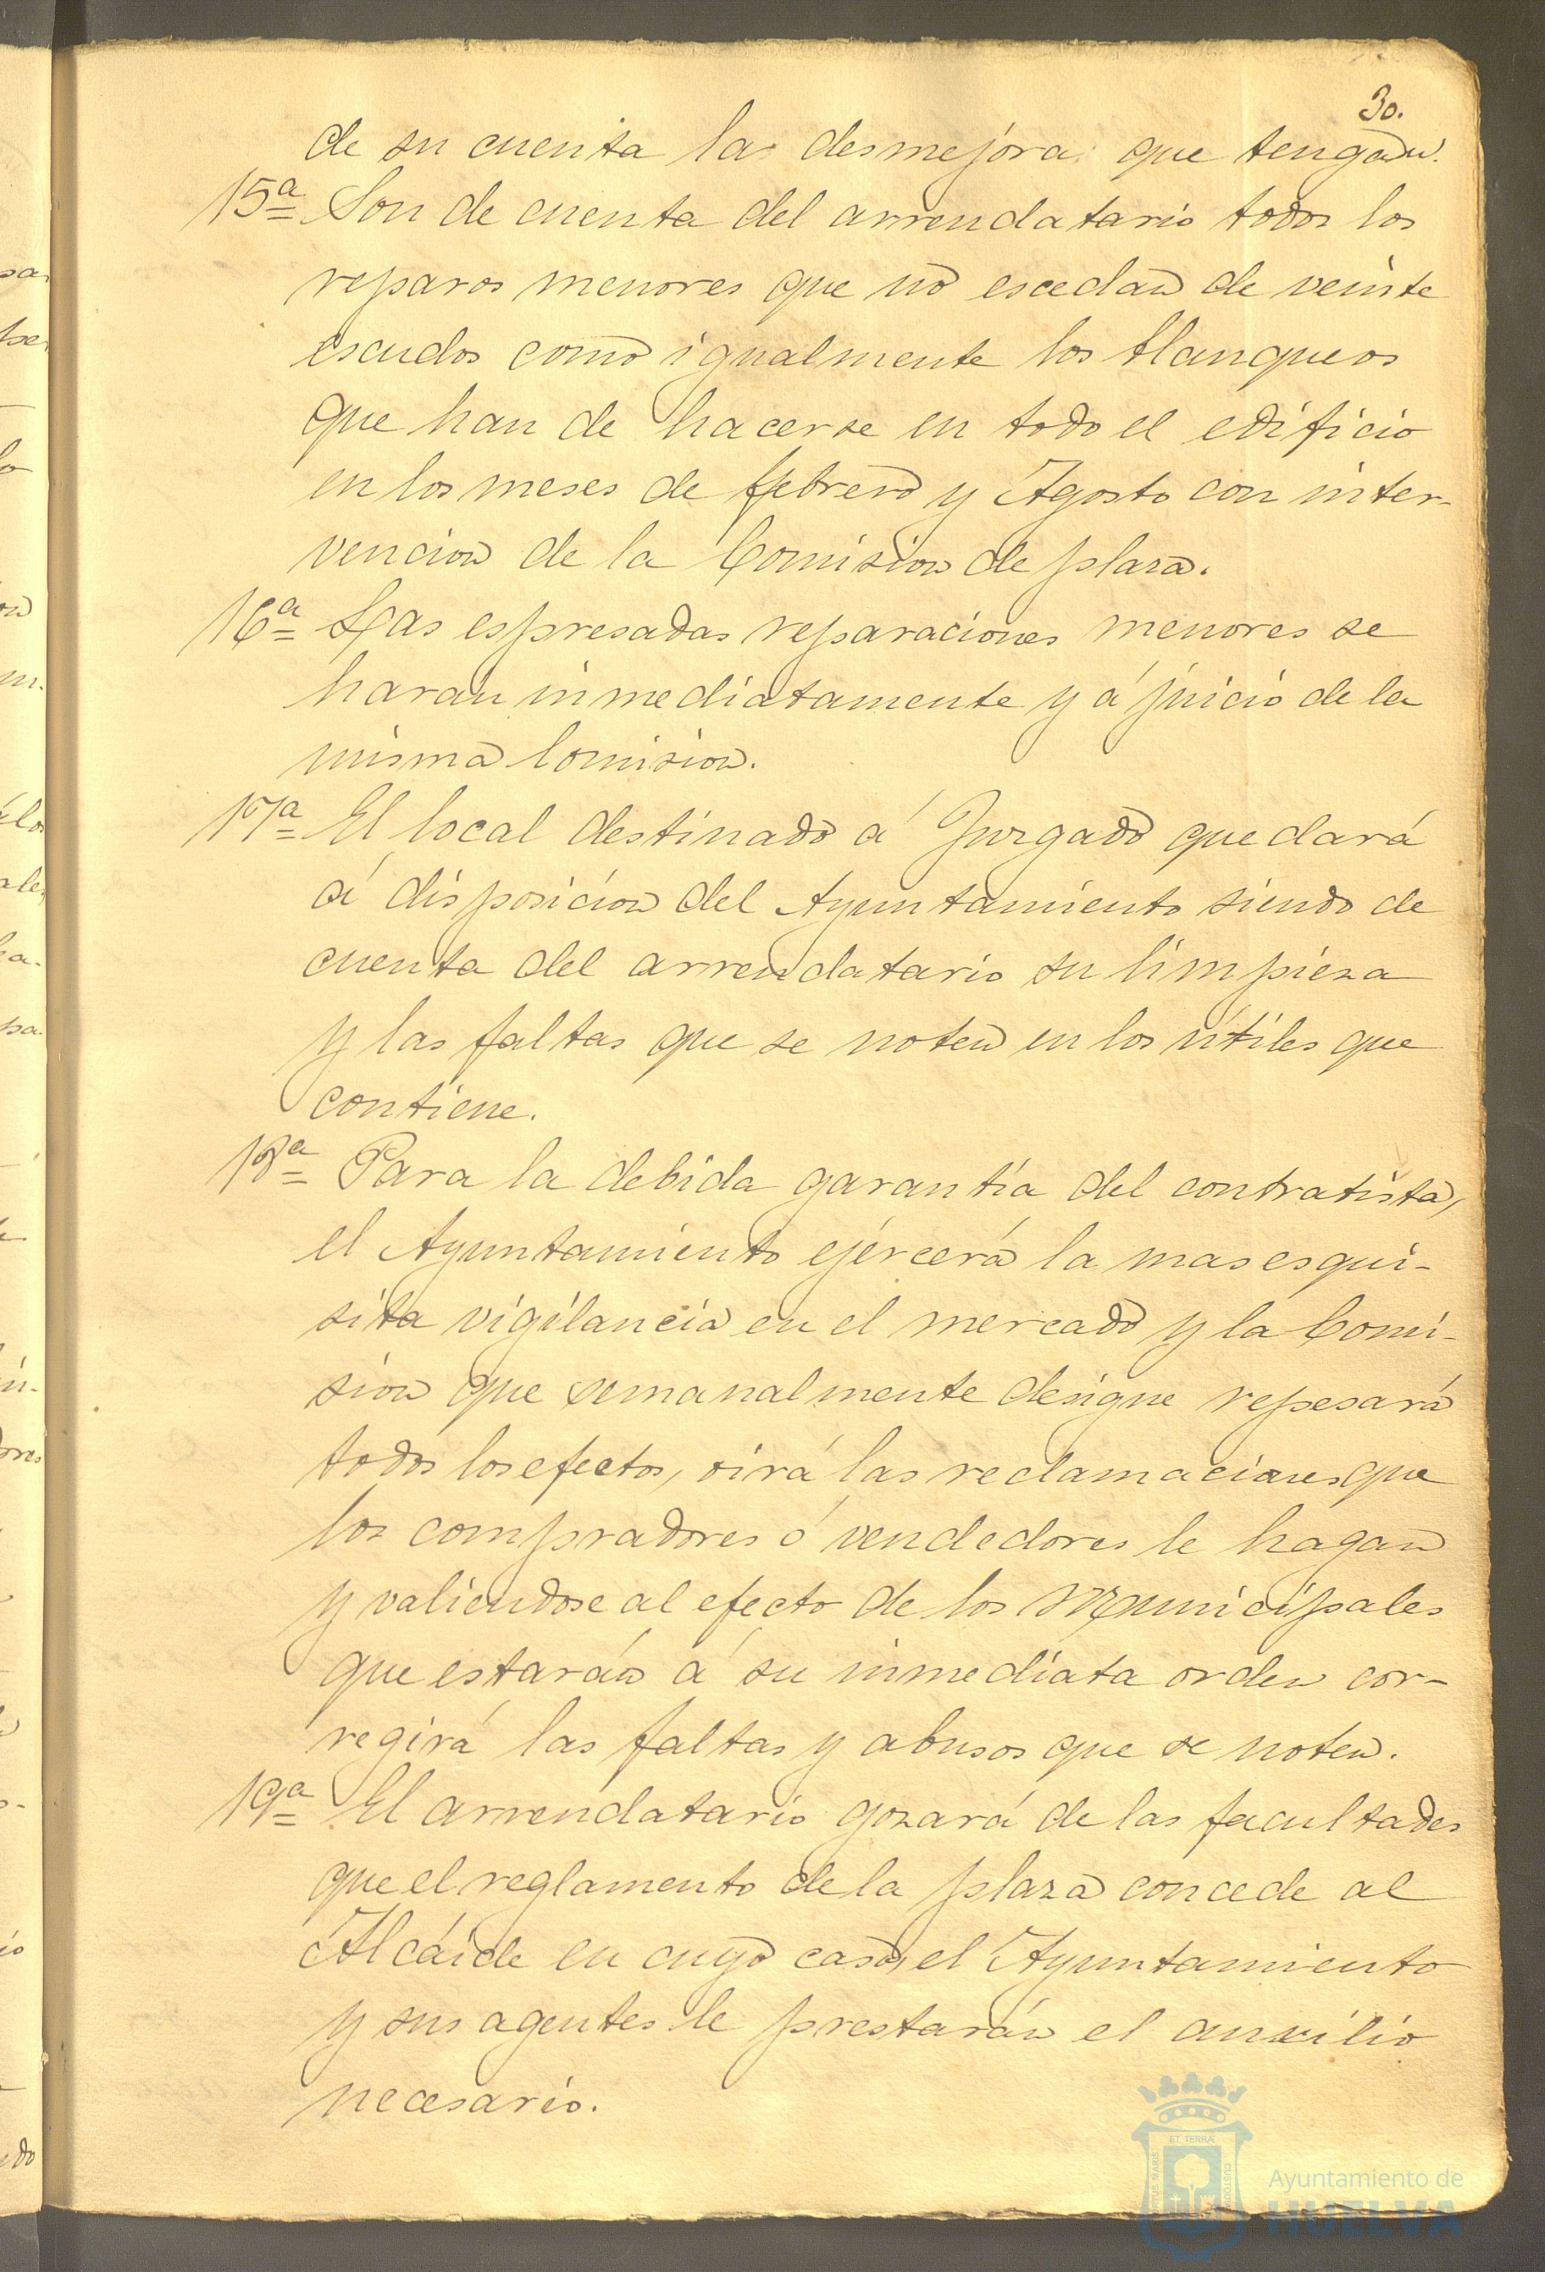 30.
de su cuenta la desmejora que tengan.
15ª Son de cuenta del arrendatario todos los
reparos menores que no escedan de veinte
escudos como igualmente los blanqueos
que han de hacerse en todo el edificio
en los meses de febrero y Agosto con inter-
vencion de la Comision de plaza.
16ª Las espresadas reparaciones menores se
haran inmediatamente y á juicio de la
misma Comision.
17ª El local destinado á Juzgado quedará
á disposicion del Ayuntamiento siendo de
cuenta del arrendatario su limpieza
y las faltas que se noten en los útiles que
contiene.
18ª Para la debida garantía del contratista,
el Ayuntamiento ejércerá la mas esqui-
sita vigilancia en el mercado y la Comi-
sion que semanalmente designe repesará
todos los efectos, oirá las reclamaciones que
los compradores ó vendedores le hagan
y valiendose al efecto de los Municipales
que estarán á su inmediata orden cor-
regirá las faltas y abusos que se noten.
19ª El arrendatario gozará de las facultades
que el reglamento de la plaza concede al
Alcáide en cuyo caso, el Ayuntamiento
y sus agentes le prestarán el ausilio
necesario.
ET TERRÆ
PORTUS MARIS
CUSTODIA
Ayuntamiento de
HUELVA